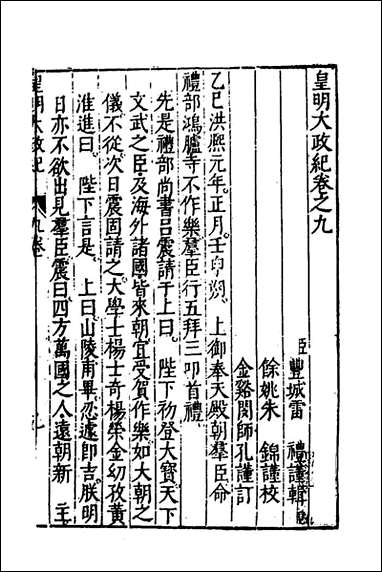 皇明大政紀卷之九
臣豐城雷禮謹輯
餘姚朱錦謹校
金谿閔師孔謹訂
乙巳洪熙元年。正月。壬申朔。上御奉天殿朝羣臣命
禮部鴻臚寺不作樂羣臣行五拜三叩首禮。
先是禮部尚書呂震請于上曰。陛下初登大寶天下
文武之臣及海外諸國皆來朝宜受賀作樂如大朝之
儀不從次日震固請之大學士楊士奇楊榮金幼孜黃
淮進曰。陛下言是。上曰山陵甫畢忍遽卽吉。朕明
日亦不欲出見羣臣震曰四方萬國之人遠朝新主
皇明大政紀 九卷